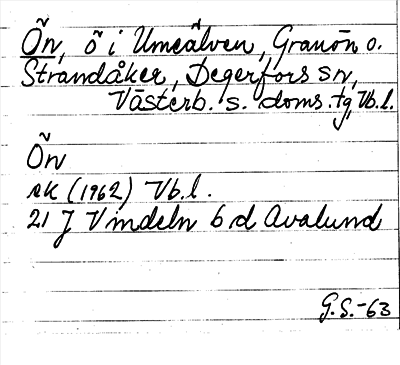 Ön, ö i Umeälven, Granön o.
Strandåker, Degerfors sn,
Västerb. s. doms. tg, Vb.l.
Ön
ek (1962) Vb.l.
21 J Vindeln 6 d Avalund
G.S.-63